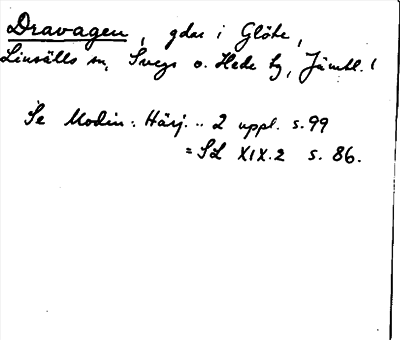 Dravagen, gdar i Glöte,
Linsälls sn, Svegs o. Hede tg, Jämtl. l
Se Modin: Härj. .. 2 uppl. s. 99
= SL XIX.2 s. 86.